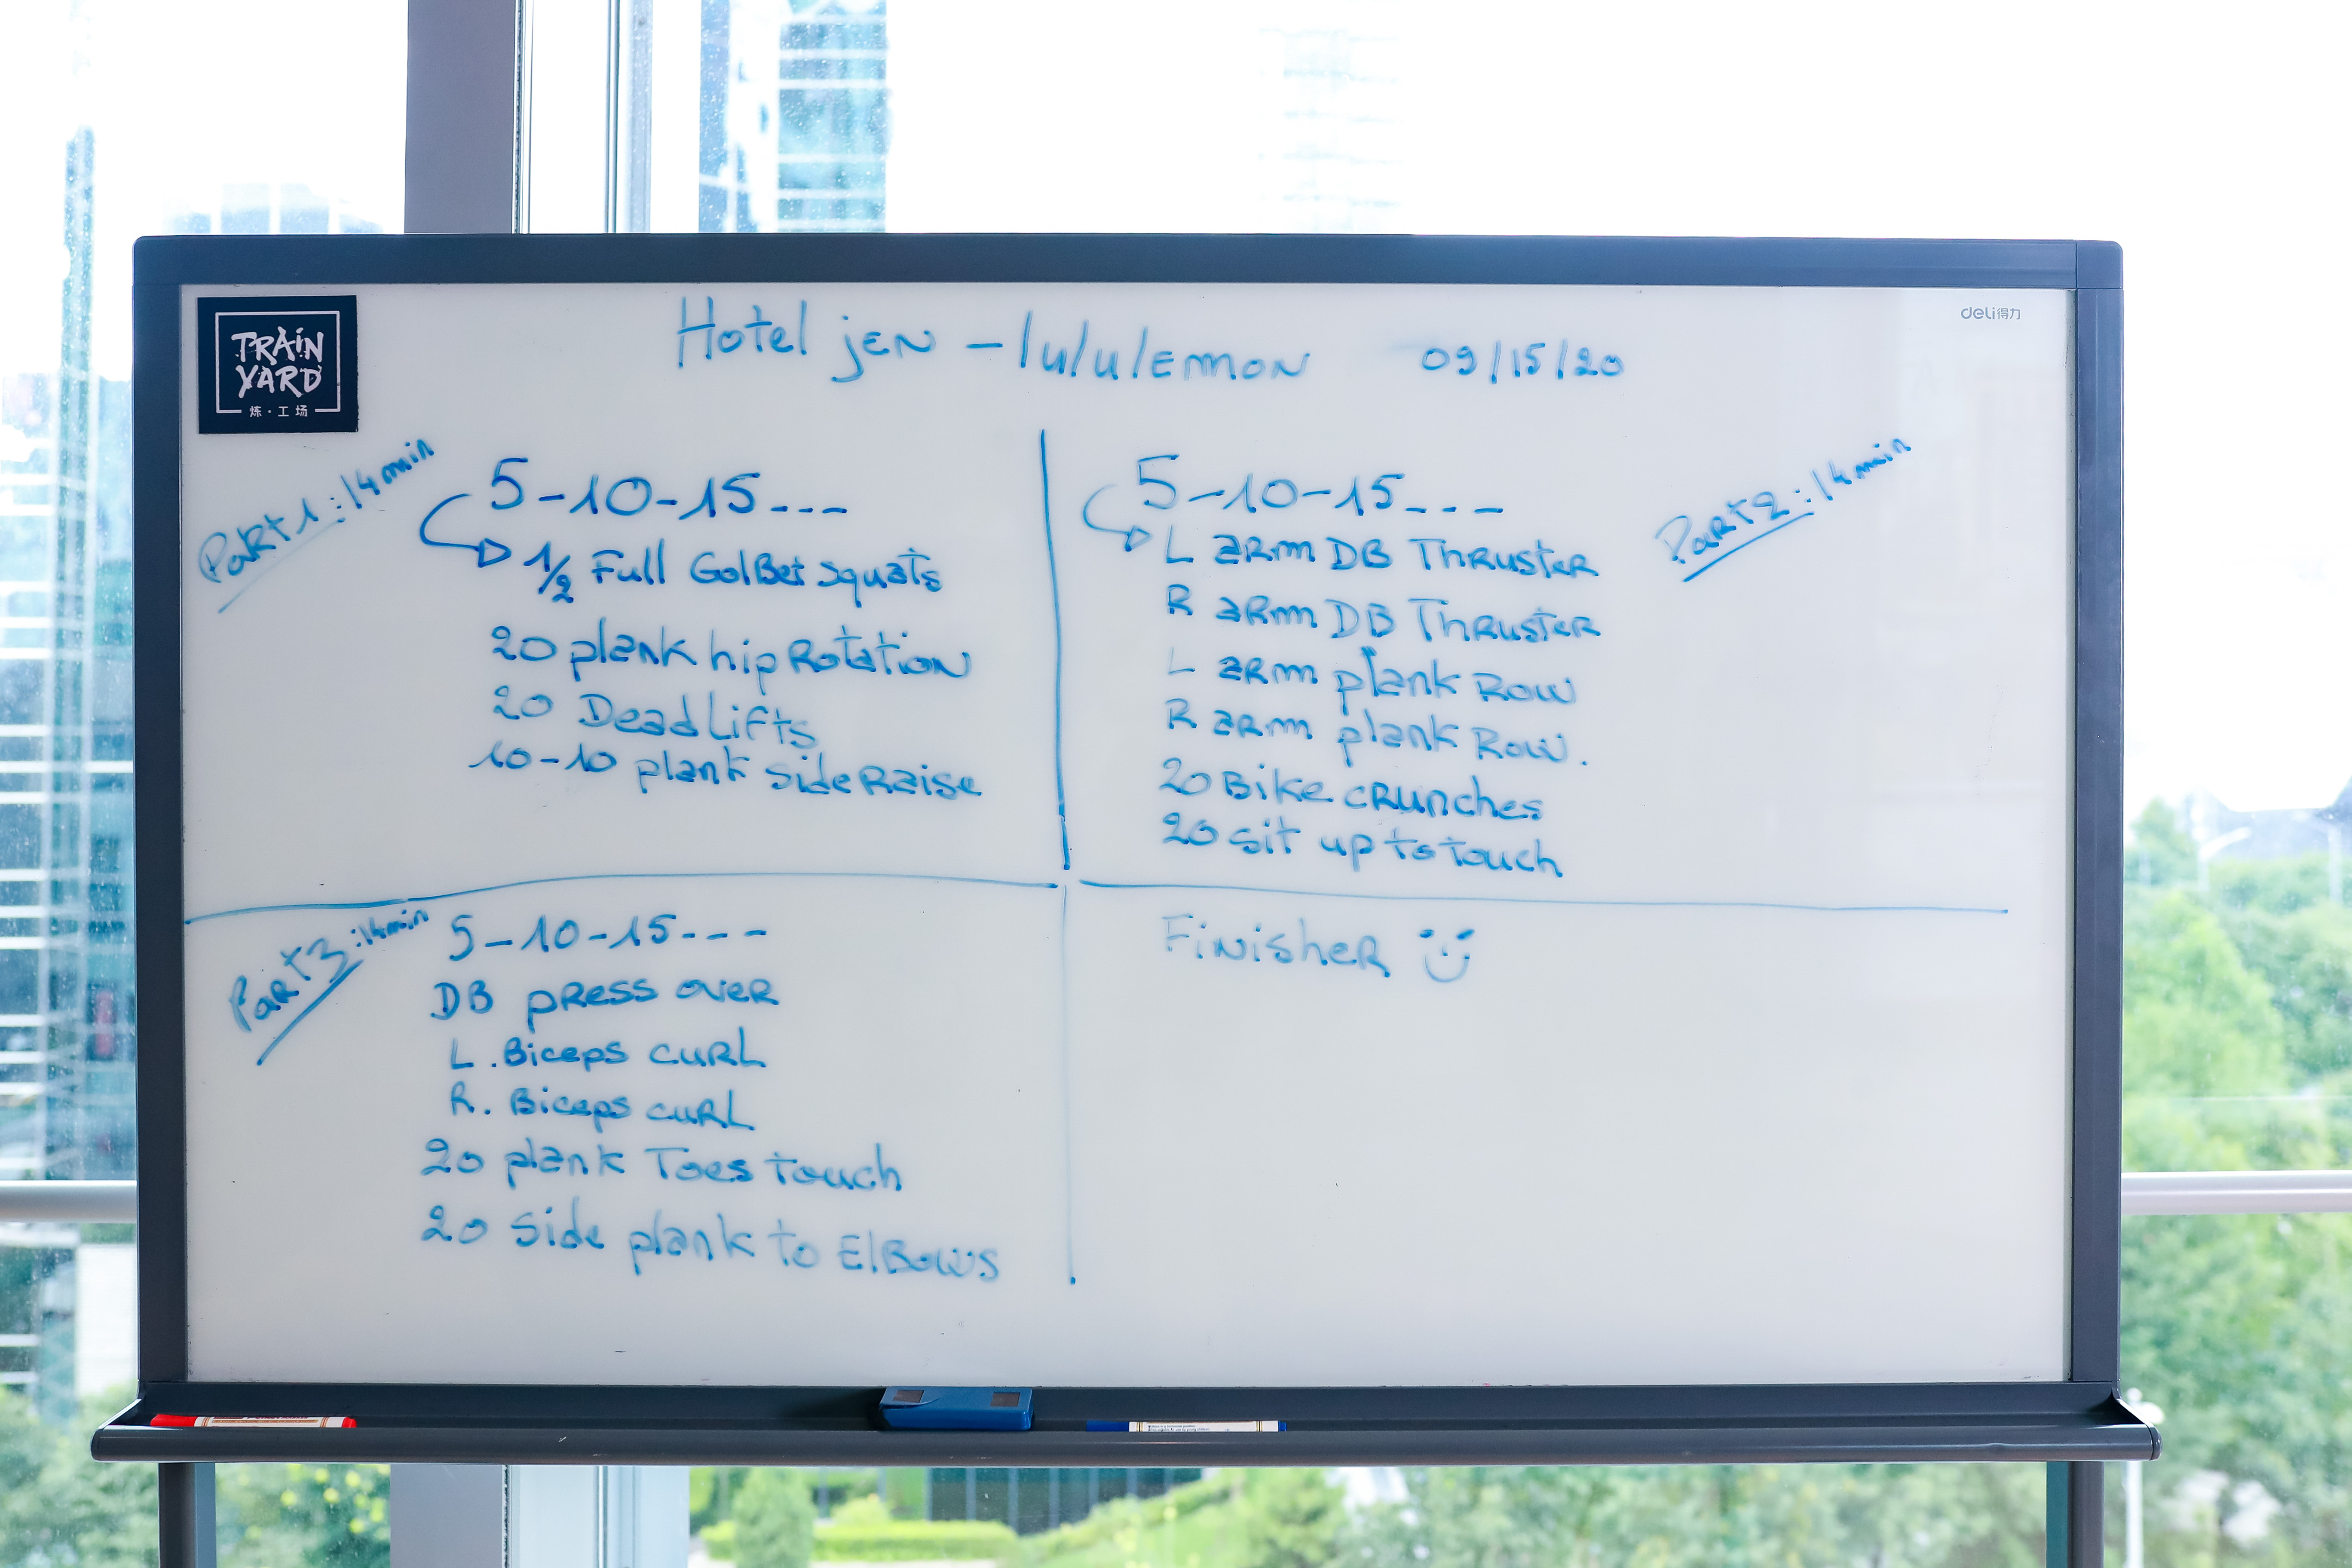 TRAIN
YARD
炼·工场
deli得力
Hotel jEN - lululEmmoN 09/15/20
PaRt 1 : 14 min
5-10-15---
1/2 Full GolBet squats
20 plank hip Rotation
20 Dead Lifts
10-10 plank side Raise
PaRt 2 : 14 min
5-10-15---
L aRm DB ThRusteR
R aRm DB ThRusteR
L aRm plank Row
R aRm plank Row.
20 Bike cRunches
20 sit up to touch
PaRT 3 : 14 min
5-10-15---
DB pRess oveR
L. Biceps cuRL
R. Biceps cuRL
20 plank Toes touch
20 side plank to ElBows
FiNisheR